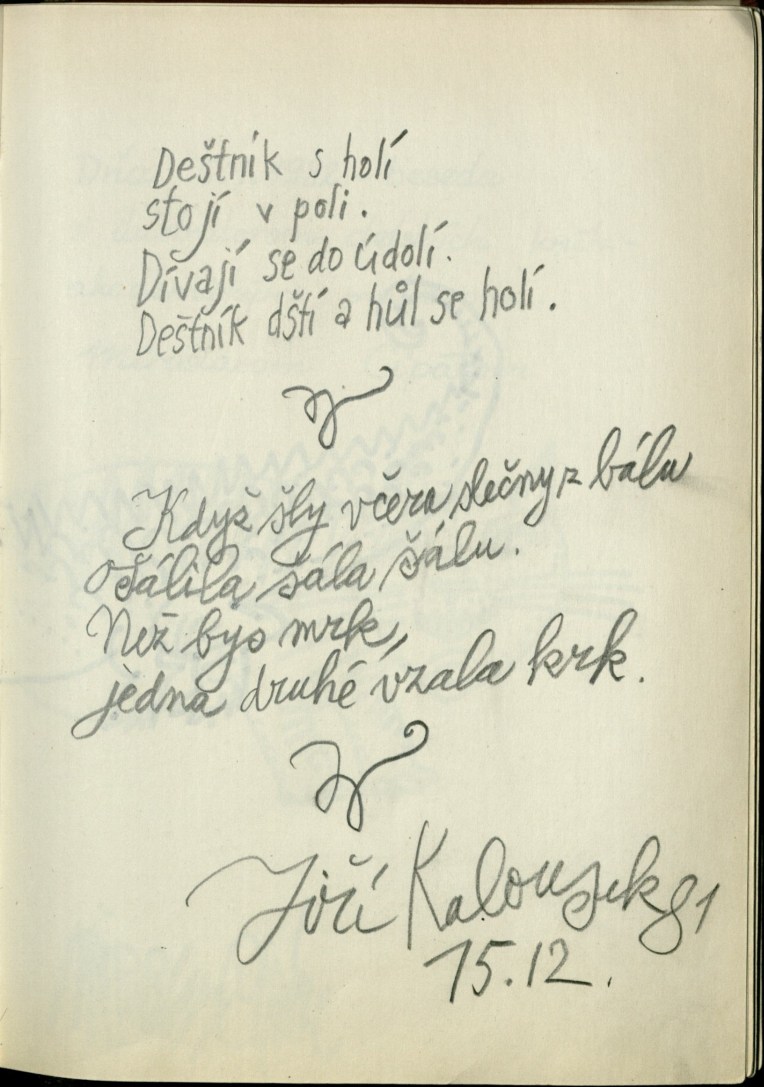 Deštník s holí
stojí v poli.
Dívají se do údolí.
Deštník dští a hůl se holí.
Když šly včera slečny z bálu
ošálila šála šálu.
Než bys mrk,
jedna druhé vzala krk.
Jiří Kalousek 81
15.12.